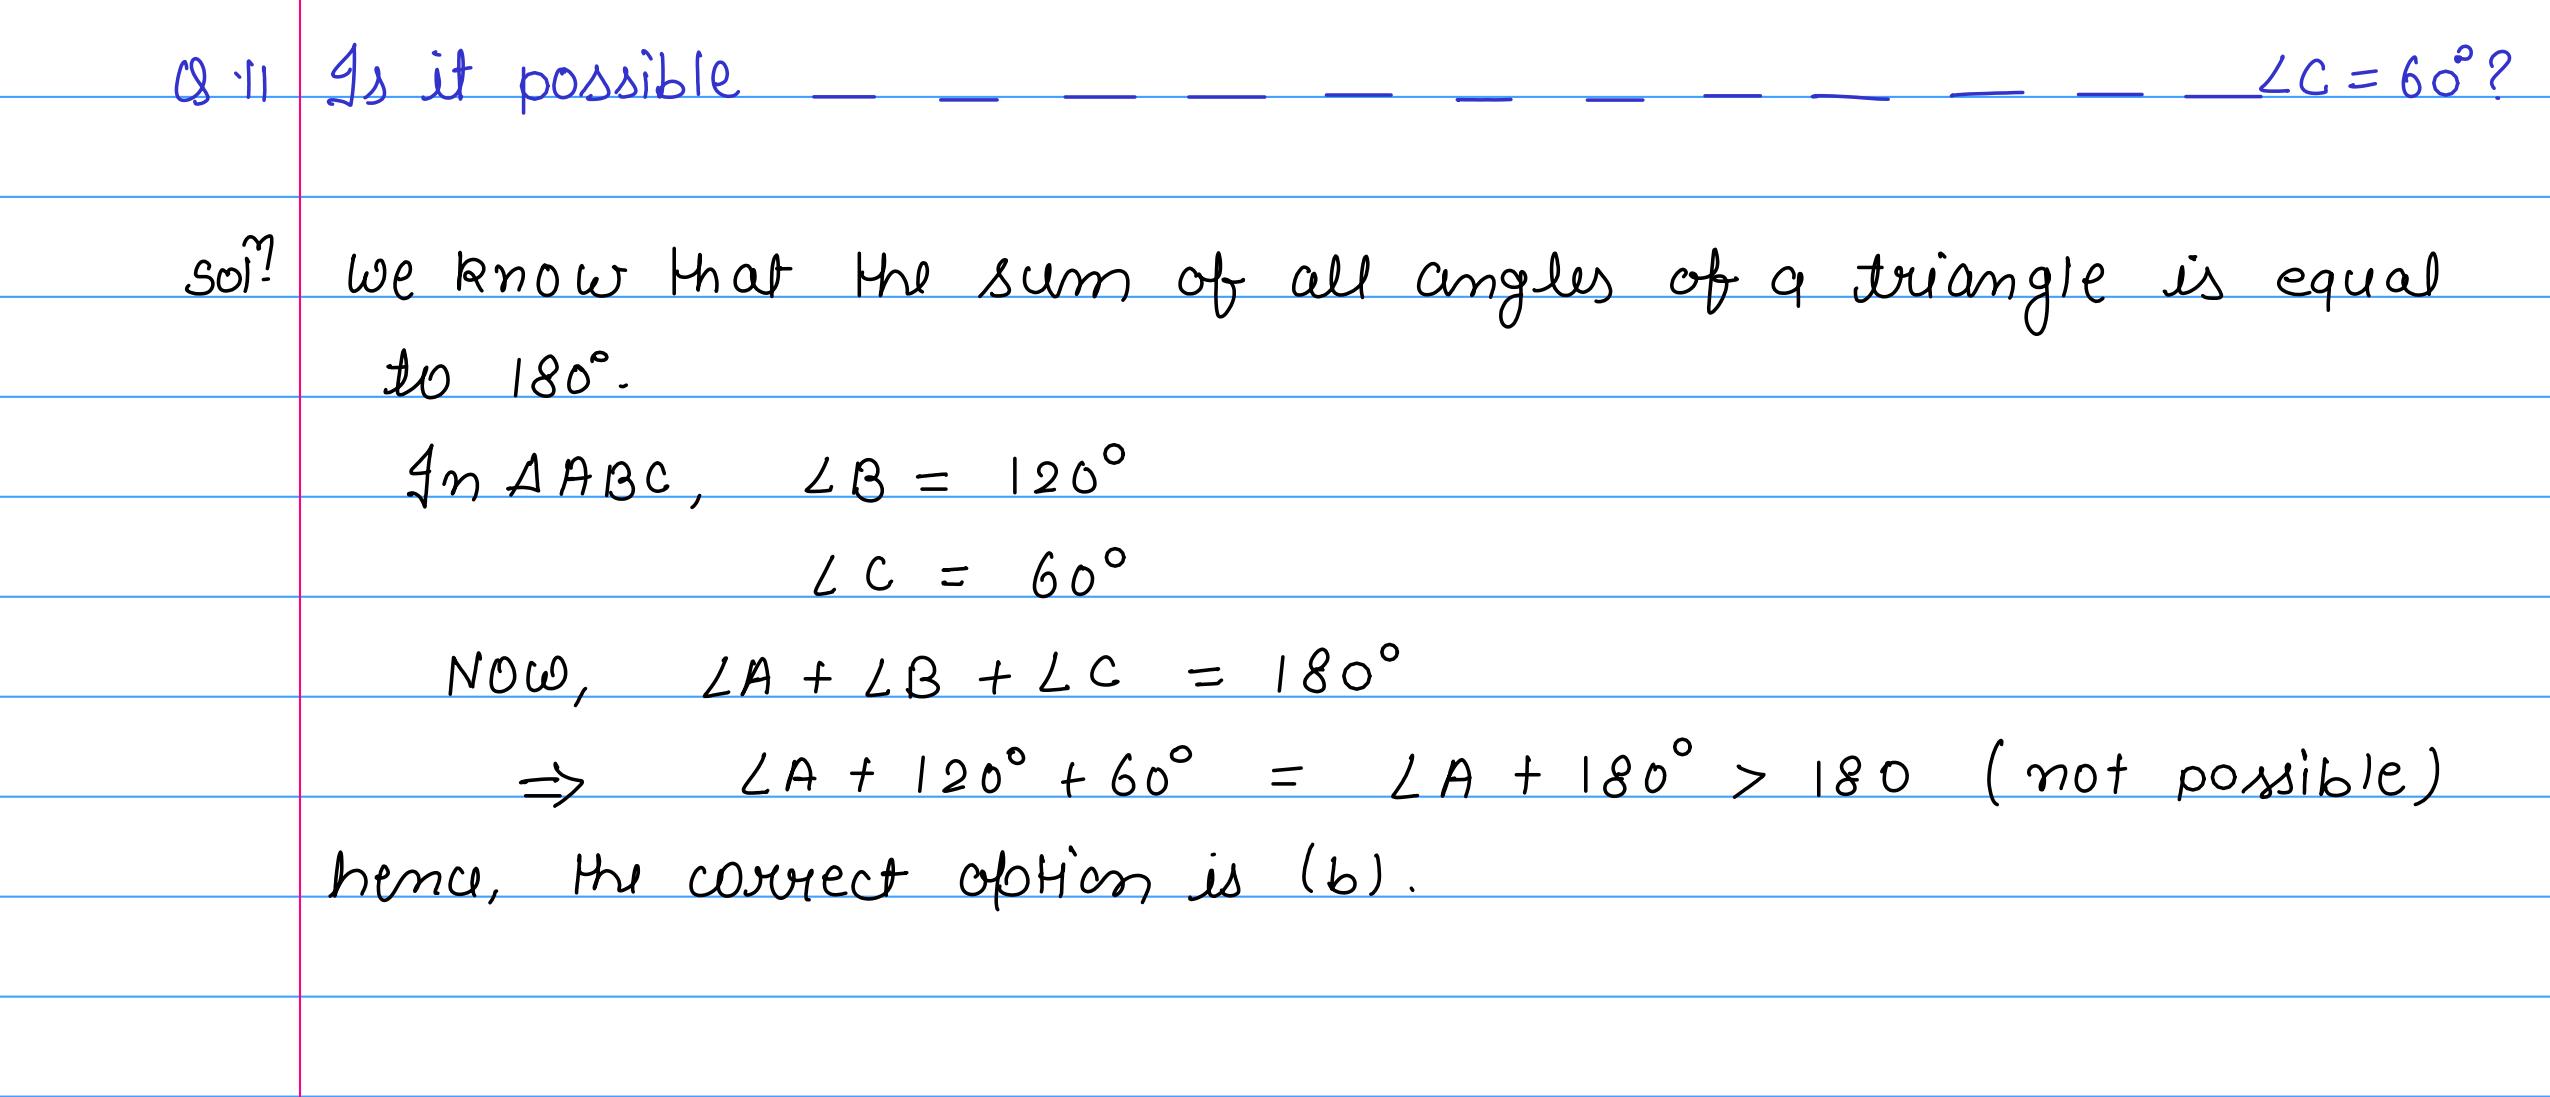 Q.11 Is it possible _ _ _ _ _ _ _ _ _ _ _ _ ∠C = 60°?
solⁿ: we know that the sum of all angles of a triangle is equal
to 180°.
In ΔABC, ∠B = 120°
∠C = 60°
NOW, ∠A + ∠B + ∠C = 180°
⇒ ∠A + 120° + 60° = ∠A + 180° > 180 (not possible)
hence, the correct option is (b).